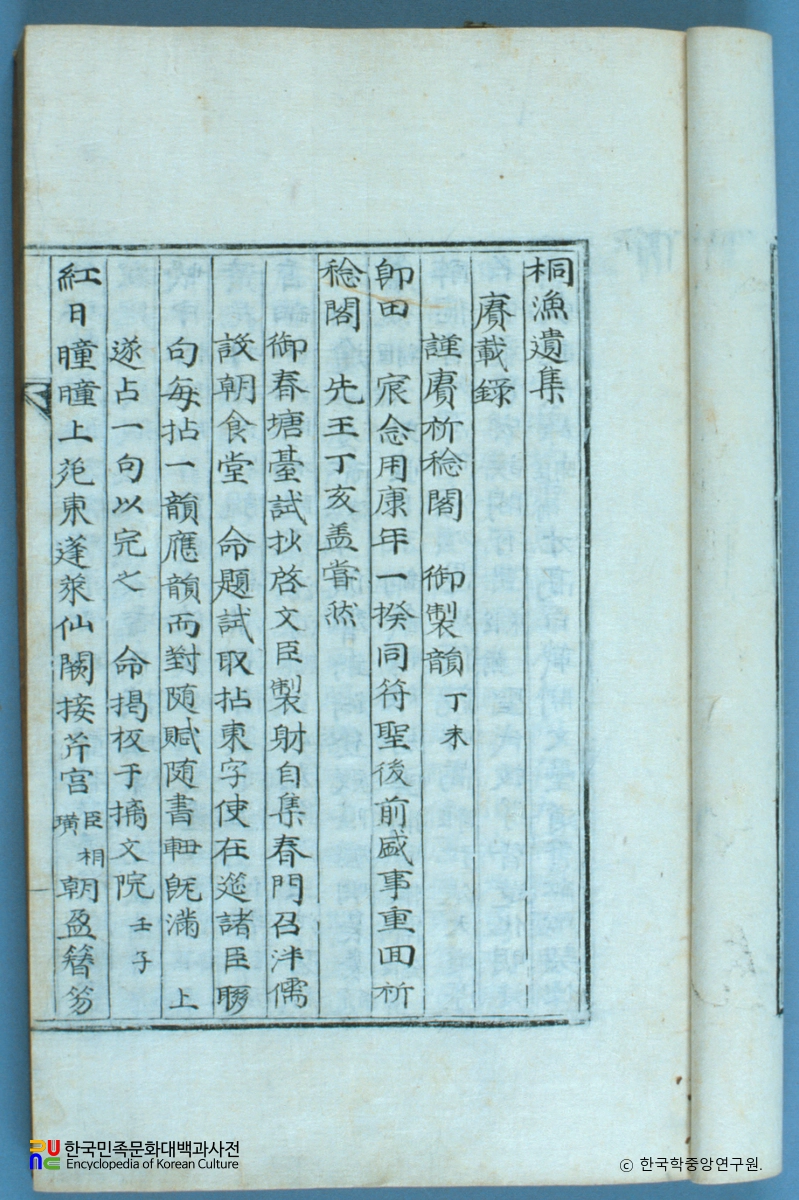 桐漁遺集
賡載錄
謹賡祈稔閣 御製韻 丁未
卽田 宸念用康年一揆同符聖後前盛事重回祈
稔閣 先王丁亥盖嘗然
御春塘臺試抄啓文臣製射自集春門召泮儒
設朝食堂 命題試取拈東字使在筵諸臣聯
句每拈一韻應韻而對隨賦隨書軸旣滿 上
遂占一句以完之 命揭板于摛文院 壬子
紅日曈曈上苑東蓬萊仙闕接芹宮 臣相璜 朝盈簪笏
한국민족문화대백과사전
Encyclopedia of Korean Culture
© 한국학중앙연구원.